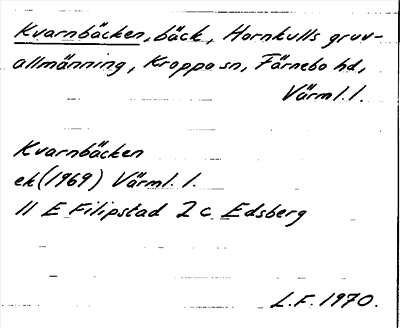 Kvarnbäcken, bäck, Hornkulls gruv-
allmänning, Kroppa sn, Färnebo hd,
Värml. l.
Kvarnbäcken
ek (1969) Värml. l.
11 E Filipstad 2 c Edsberg
L.F. 1970.